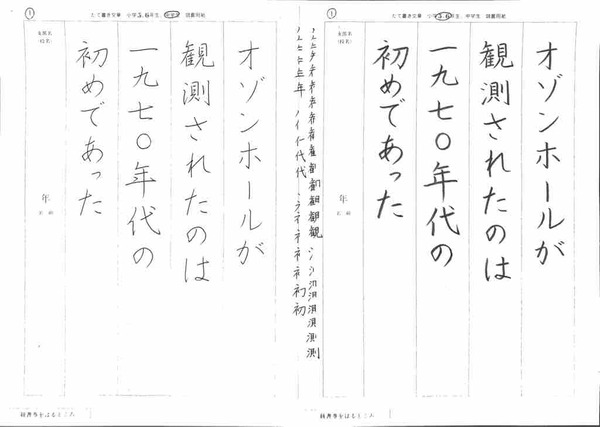 ① たて書き文章 小学5.6年生 中学生
支部名
(校名)
オゾンホールが
観測されたのは
一九七〇年代の
初めであった
年
名前
をはるところ
① たて書き文章 小学5.6年生 中学生
支部名
(校名)
オゾンホールが
観測されたのは
一九七〇年代の
初めであった
年
名前
をはるところ